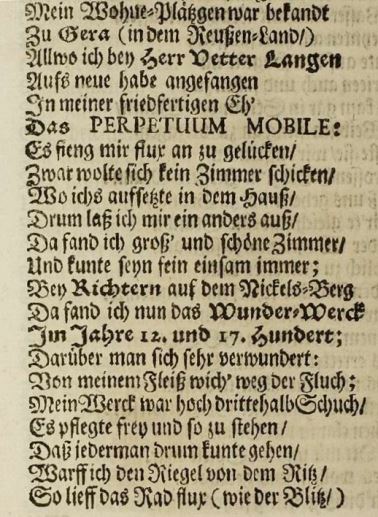 Mein Wohne-Plätzgen war bekandt
Zu Gera (in dem Reußen-Land/)
Allwo ich bey Herr Vetter Langen
Aufs neue habe angefangen
In meiner friedfertigen Eh'
Das PERPETUUM MOBILE:
Es fieng mir flux an zu gelücken/
Zwar wolte sich kein Zimmer schicken/
Wo ichs auffsetzte in dem Hauß/
Drum laß ich mir ein anders auß/
Da fand ich groß' und schöne Zimmer/
Und kunte seyn fein einsam immer;
Bey Richtern auf dem Nickels-Berg
Da fand ich nun das Wunder-Werck
Im Jahre 12. und 17. Hundert;
Darüber man sich sehr verwundert:
Von meinem Fleiß wich' weg der Fluch;
Mein Werck war hoch drittehalb Schuch/
Es pflegte frey und so zu stehen/
Daß jederman drum kunte gehen/
Warff ich den Riegel von dem Ritz/
So lieff das Rad flux (wie der Blitz/)